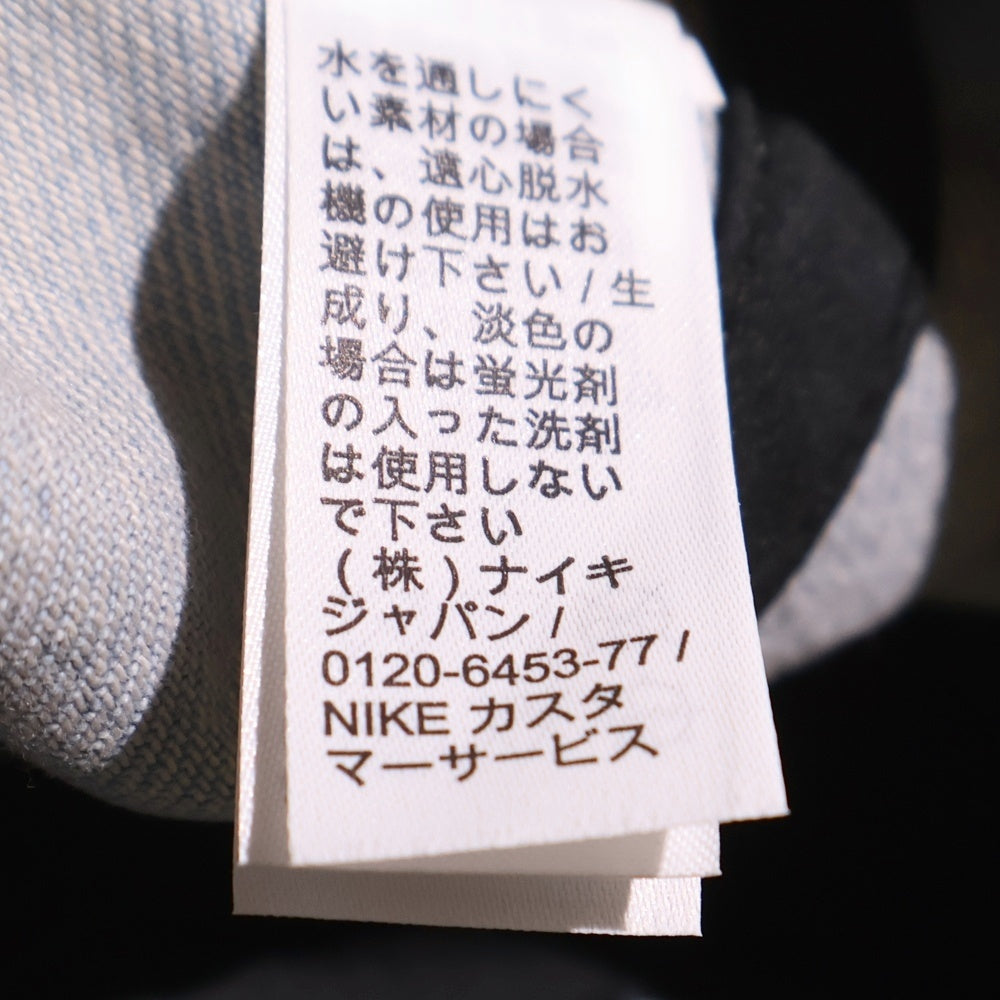 水を通しにく
い素材の場合
は、遠心脱水
機の使用はお
避け下さい / 生
成り、淡色の
場合は蛍光剤
の入った洗剤
は使用しない
で下さい
(株)ナイキ
ジャパン /
0120-6453-77 /
NIKE カスタ
マーサービス